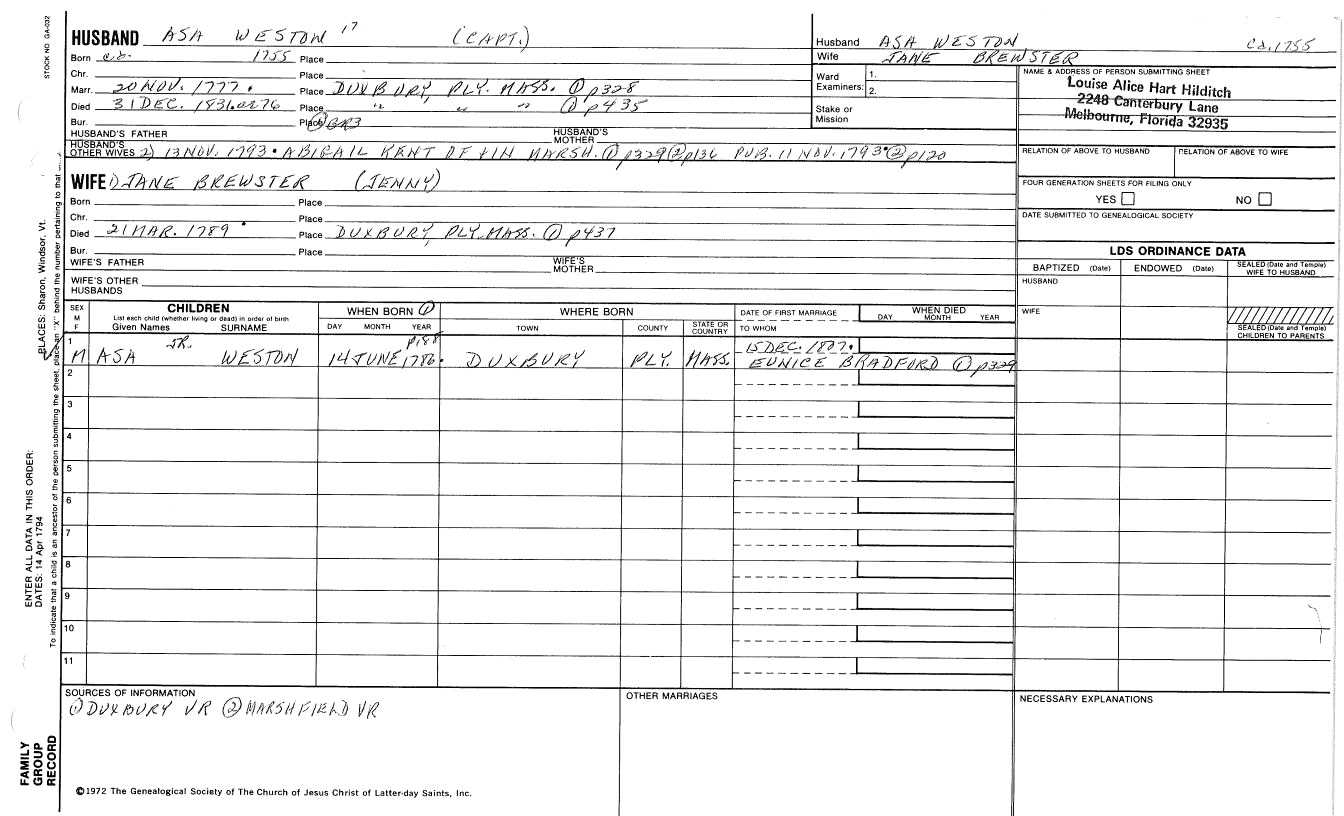 STOCK NO GA-032
HUSBAND ASA WESTON 17 (CAPT.)
Born ca. 1755 Place
Chr. Place
Marr. 20 NOV. 1777. Place DUXBURY, PLY. MASS. ① p328
Died 31 DEC. 1831. ae 76 Place " " " ① p435
Bur. Place ① GR3
HUSBAND'S FATHER HUSBAND'S MOTHER
HUSBAND'S OTHER WIVES 2) 13 NOV. 1793. ABIGAIL KENT OF & IN MARSH. ① p329 ② p136 PUB. 11 NOV. 1793. ② p120
WIFE 1) JANE BREWSTER (JENNY)
Born Place
Chr. Place
Died 21 MAR. 1789. Place DUXBURY, PLY. MASS. ① p437
Bur. Place
WIFE'S FATHER WIFE'S MOTHER
WIFE'S OTHER HUSBANDS
Husband ASA WESTON ca. 1755
Wife JANE BREWSTER
Ward Examiners: 1.
2.
Stake or Mission
NAME & ADDRESS OF PERSON SUBMITTING SHEET
Louise Alice Hart Hilditch
2248 Canterbury Lane
Melbourne, Florida 32935
RELATION OF ABOVE TO HUSBAND RELATION OF ABOVE TO WIFE
FOUR GENERATION SHEETS FOR FILING ONLY
YES NO
DATE SUBMITTED TO GENEALOGICAL SOCIETY
LDS ORDINANCE DATA
BAPTIZED (Date) ENDOWED (Date) SEALED (Date and Temple) WIFE TO HUSBAND
HUSBAND
WIFE
SEALED (Date and Temple) CHILDREN TO PARENTS
SEX M F CHILDREN WHEN BORN ① WHERE BORN DATE OF FIRST MARRIAGE WHEN DIED
List each child (whether living or dead) in order of birth
Given Names SURNAME DAY MONTH YEAR TOWN COUNTY STATE OR COUNTRY TO WHOM DAY MONTH YEAR
1 JR. p188 15 DEC. 1807.
M ASA WESTON 14 JUNE 1786. DUXBURY PLY. MASS. EUNICE BRADFORD ① p329
2
3
4
5
6
7
8
9
10
11
SOURCES OF INFORMATION
① DUXBURY VR ② MARSHFIELD VR
OTHER MARRIAGES
NECESSARY EXPLANATIONS
©1972 The Genealogical Society of The Church of Jesus Christ of Latter-day Saints, Inc.
FAMILY
GROUP
RECORD
ENTER ALL DATA IN THIS ORDER:
DATES: 14 Apr 1794 PLACES: Sharon, Windsor, Vt.
To indicate that a child is an ancestor of the person submitting the sheet, place an "X" behind the number pertaining to that